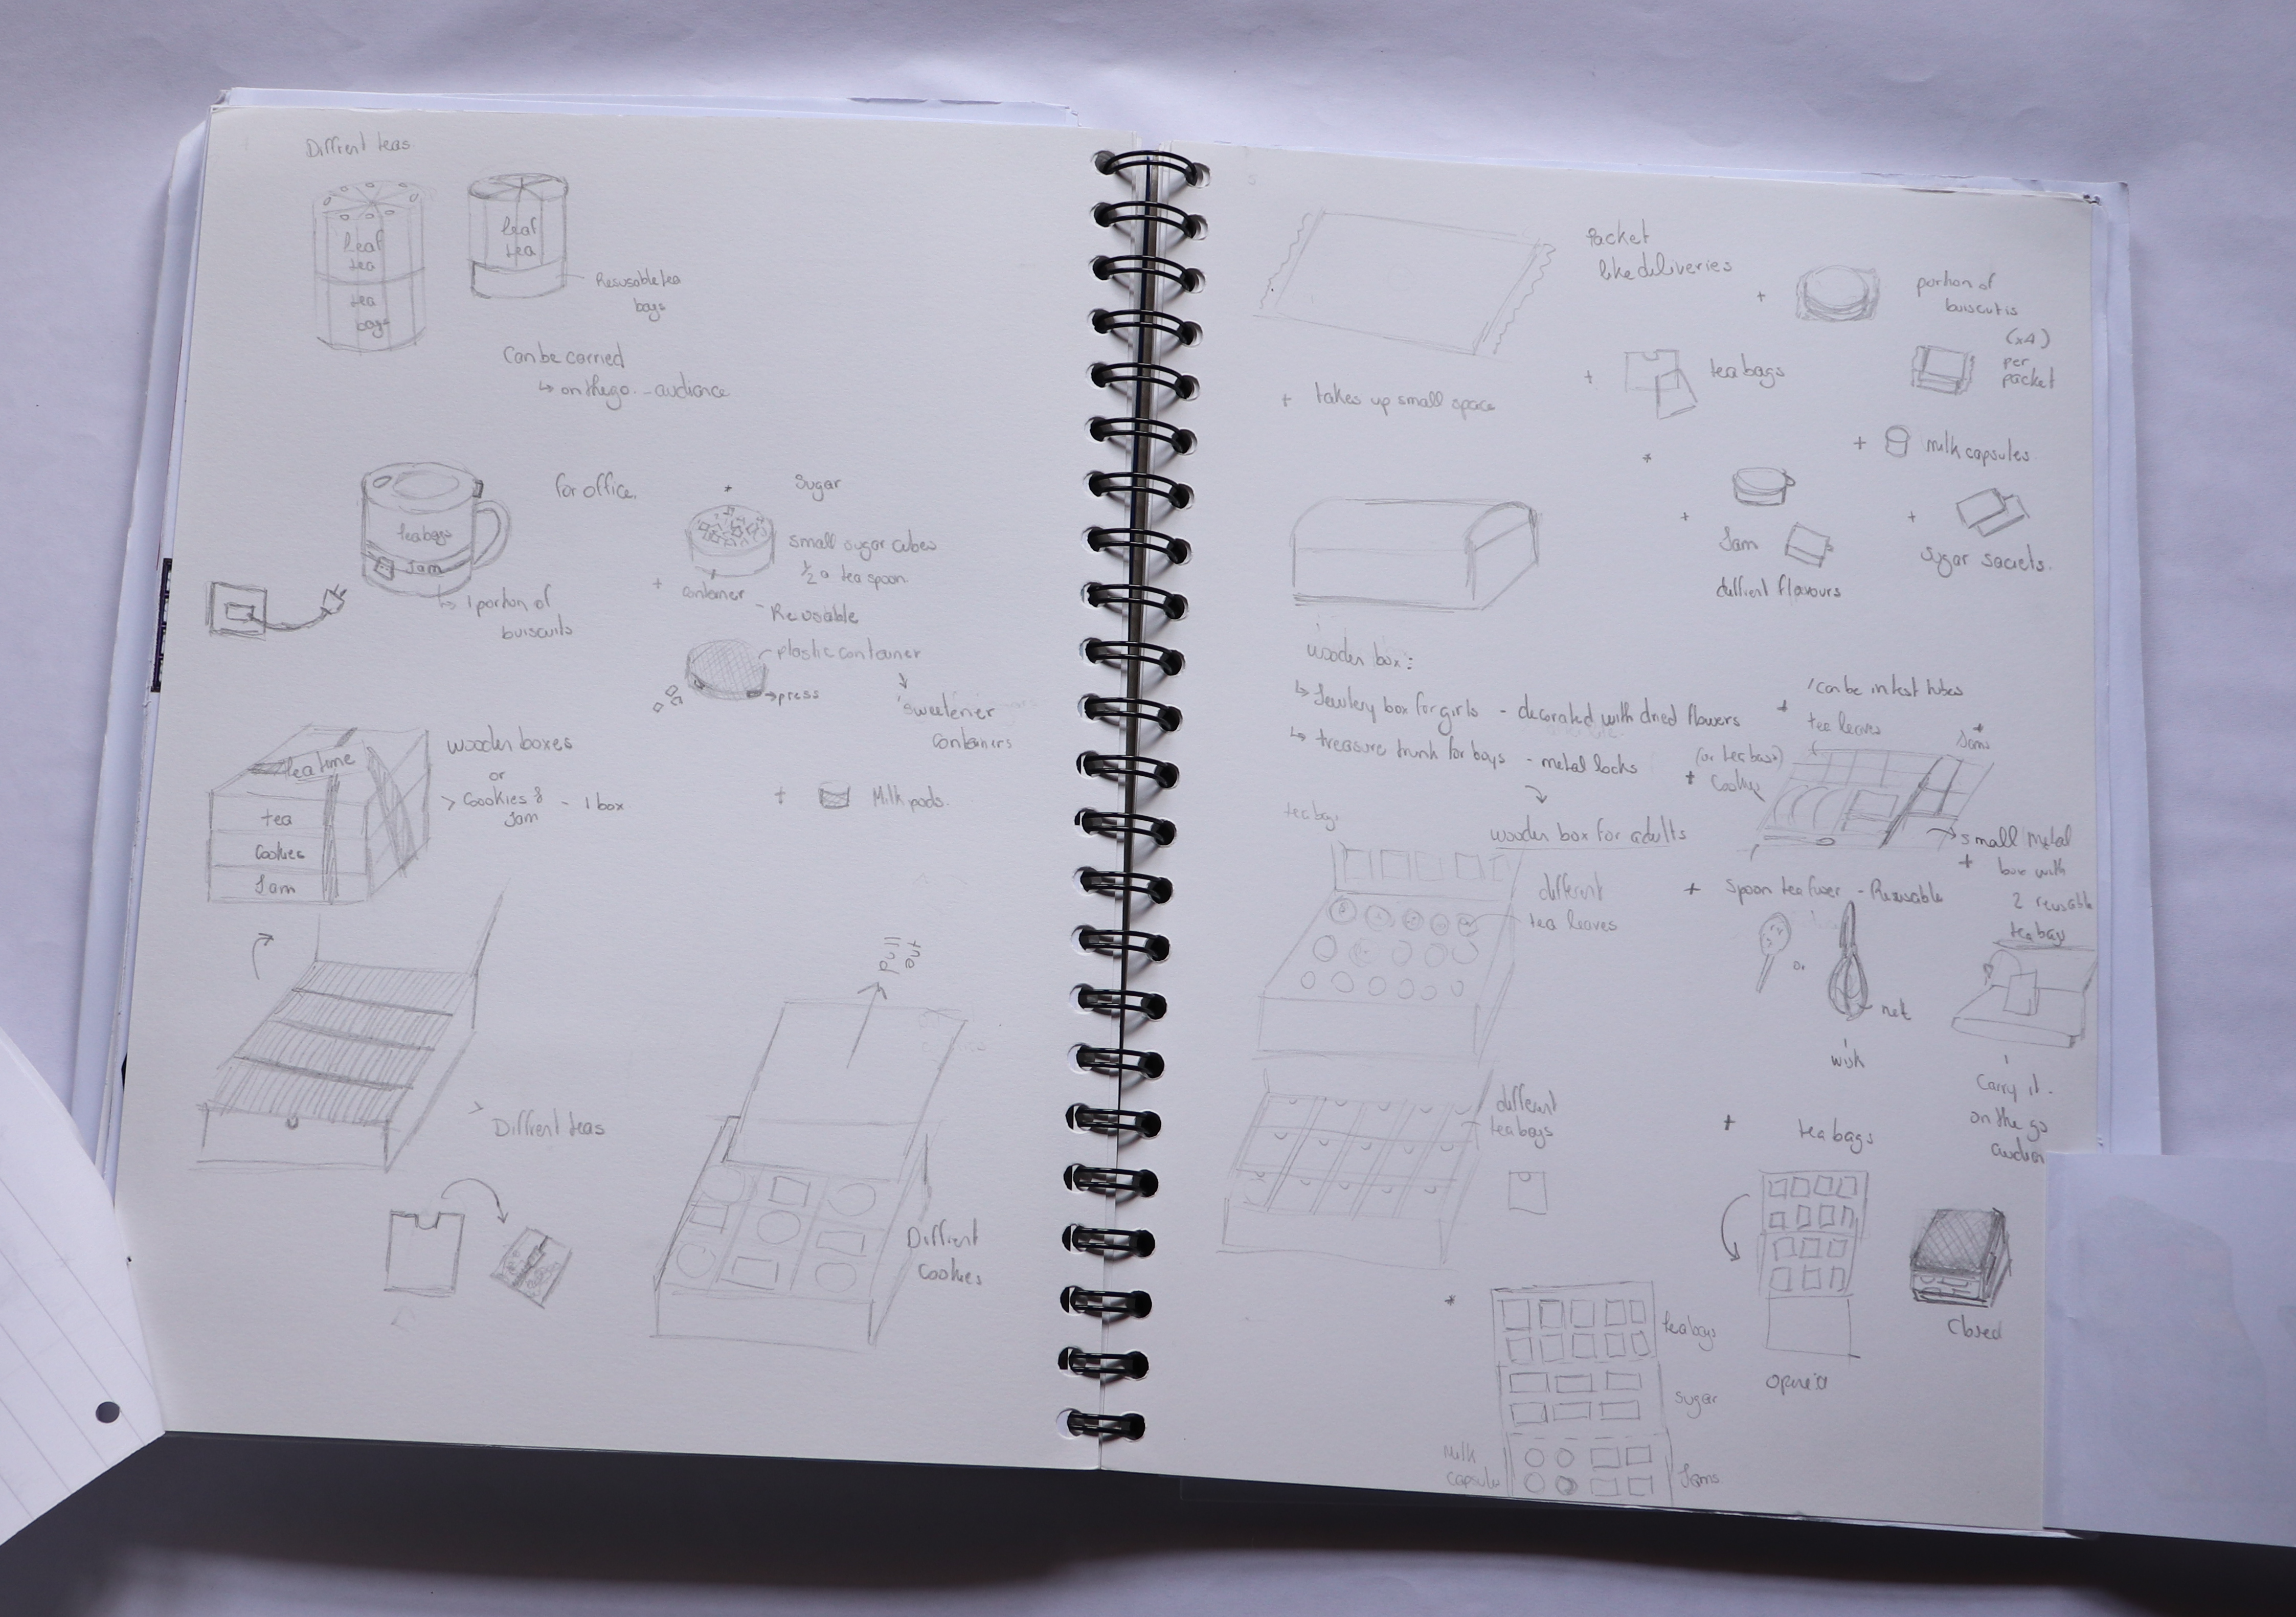 Diffrent teas
leaf
tea
tea
bags
leaf
tea
Resusable tea
bags
Can be carried
↳ on the go. - audiance
for office.
teabags
Jam
↳ 1 portion of
buiscuits
+ Sugar
small sugar cubes
1/2 a tea spoon
+ container
- Reusable
plastic container
→ press
sweetener
containers
+ Milk pods.
tea time
tea
Cookies
Jam
wooden boxes
or
> Cookies &
Jam - 1 box
> Diffrent teas
pull
Diffrent
Cookies
Packet
like deliveries
+ takes up small space
+ portion of
buiscutis
(x4)
per
packet
+ tea bags
+ milk capsules
+ Jam
diffrent flavours
+ Sugar sacets.
wooden box:
↳ Jewlery box for girls - decorated with dried flowers
↳ treasure trunk for boys - metal locks
wooden box for adults
tea bags
different
tea leaves
different
tea bags
+ 'can be in test tubes
tea leaves
(or tea bags)
+ Cookies
+ Jams
→ small metal
+ box with
2 reusable
tea bags
+ Spoon tea fuser - Reusable
or
net
wisk
Carry it.
on the go
+ tea bags
opened
Closed
tea bags
Sugar
Milk
capsule
Jams